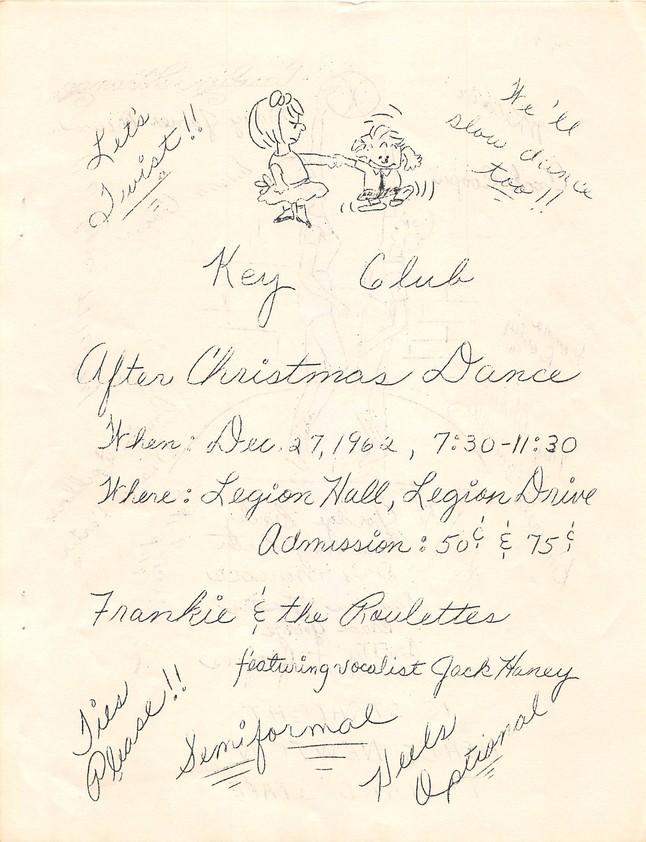 Let's
Twist!!
We'll
slow dance
too!!
Key Club
After Christmas Dance
When: Dec. 27, 1962, 7:30-11:30
Where: Legion Hall, Legion Drive
Admission: 50¢ & 75¢
Frankie & the Roulettes
featuring vocalist Jack Haney
Ties
Please!!
Semiformal
Heels
Optional